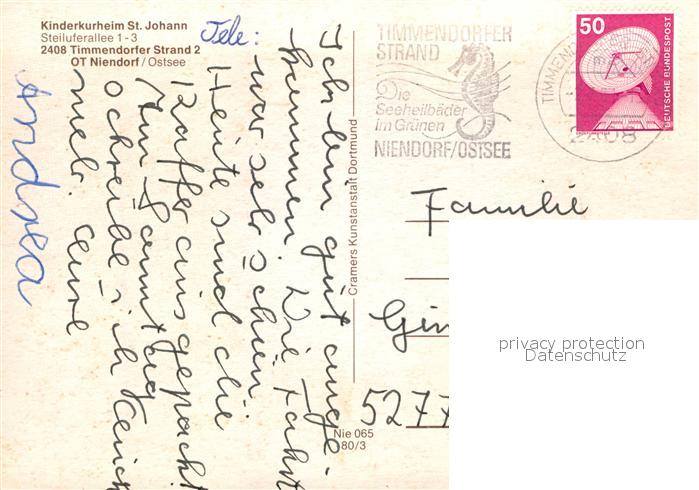 Kinderkurheim St. Johann
Steiluferallee 1-3
2408 Timmendorfer Strand 2
OT Niendorf / Ostsee
Tele:
Ich bin gut ange-
kommen. Die Fahrt
war sehr schön.
Heute sind die
Koffer ausgepackt
Am Sonntag
schreibe ich Euch
mehr. Eure
Andrea
Cramers Kunstanstalt Dortmund
Nie 065
80/3
TIMMENDORFER
STRAND
Die
Seeheilbäder
im Grünen
NIENDORF/OSTSEE
TIMMEND
2408
50
DEUTSCHE BUNDESPOST
Familie
5277
privacy protection
Datenschutz